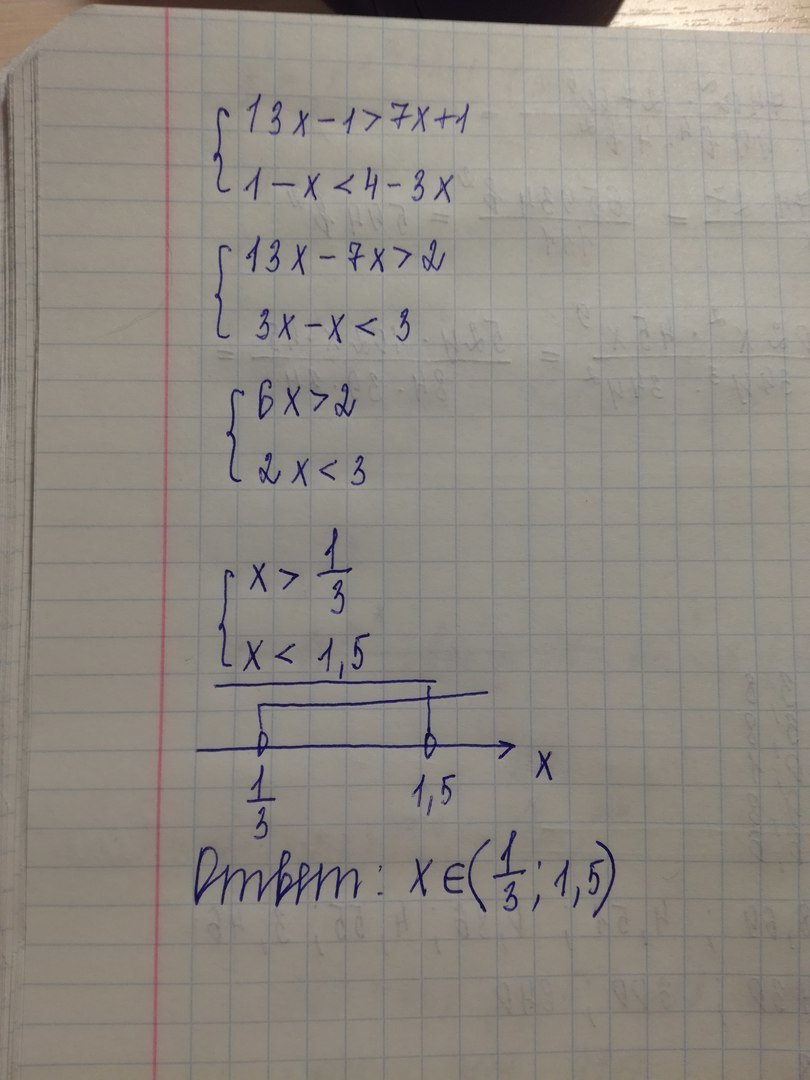 13x-1>7x+1
1-x<4-3x
13x-7x>2
3x-x<3
6x>2
2x<3
x>1/3
x<1,5
x
1/3 1,5
Ответ: x∈(1/3; 1,5)